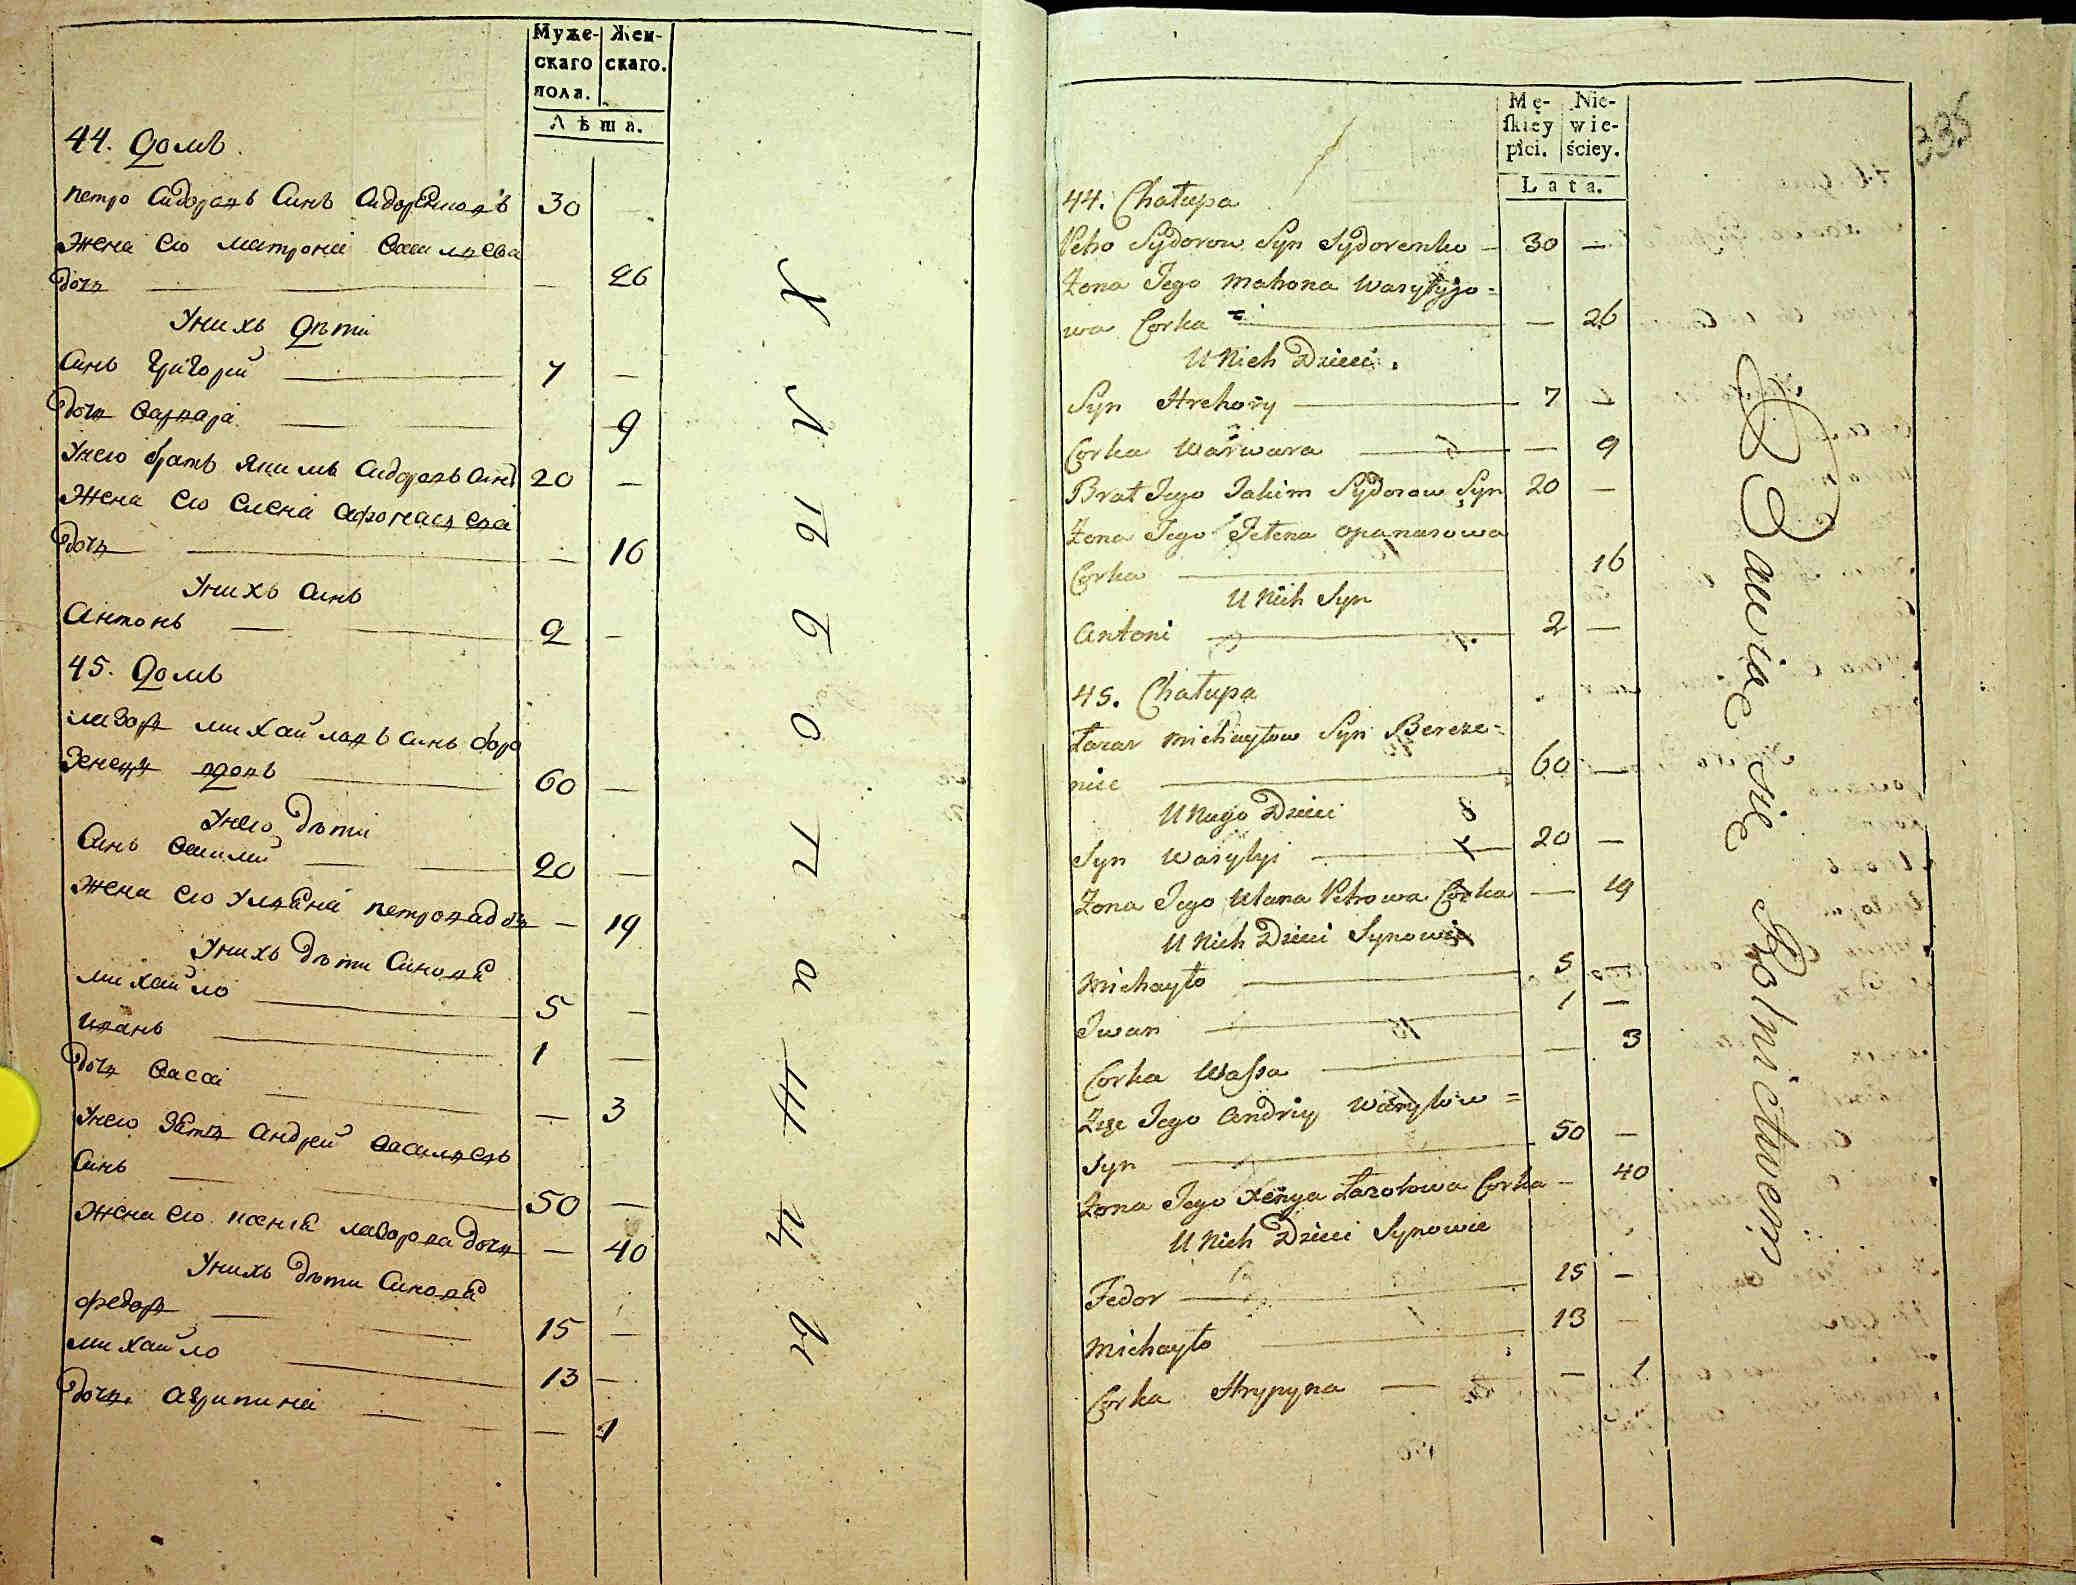 Муже-
скаго
пола.
Жен-
скаго.
Лѣта.
44. Домъ
петро Сидоровъ Синъ Сидоренковъ 30 —
Жена Его матрона Василиева
дочь — 26
Унихъ Дѣти
Синъ Григорий 7 —
дочь Варвара 9
Унего братъ Якимъ Сидоровъ Синъ 20 —
Жена Его Елена Афонасиева
дочь — 16
Унихъ Синъ
Антонъ 2 —
45. Домъ
лазоръ михайловъ Синъ бере
зенець вдовъ 60 —
Унего дѣти
Синъ Василий 20 —
Жена Его Улияна петрова дочь — 19
Унихъ дѣти Синови
михайло 5 —
Иванъ 1 —
дочь Васса — 3
Унего Зять Андрей Василиевъ
Синъ 50 —
Жена Его Ксения лазорова дочь — 40
Унихъ дѣти Синови
федоръ 15 —
михайло 13 —
дочь Агрипина — 1
Хлѣбопашцы
335
Mę-
skiey
płci.
Nie-
wie-
ściey.
Lata.
44. Chałupa
Petro Sydorow Syn Sydorenko — 30 —
Żona Jego Matrona Wasylyjo=
wa Corka — 26
U Nich Dzieci.
Syn Hrehory 7 —
Corka Warwara — 9
Brat Jego Jakim Sydorow Syn 20 —
Żona Jego Jełena Opanasowa
Corka 16
U Nich Syn
Antoni 2 —
45. Chałupa
Łazar Michayłow Syn Bereze=
niec 60 —
U Nugo Dzieci
Syn Wasylyi 20 —
Żona Jego Ulana Petrowa Corka — 19
U Nich Dzieci Synowie
Michayło 5 —
Jwan 1 —
Corka Wassa — 3
Zięc Jego Andriy Wasylow=
Syn 50 —
Żona Jego Xenya Łazorowa Corka — 40
U Nich Dzieci Synowie
Fedor 15 —
Michayło 13 —
Corka Hrypyna — 1
Bawiąc się Rolnictwem